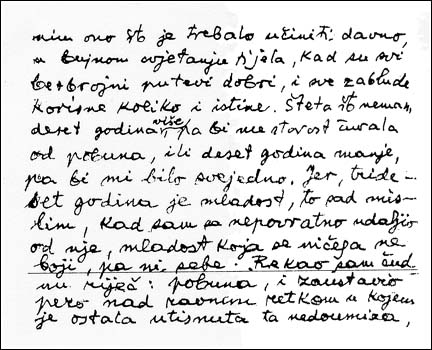 nim ono št je trebalo učiniti davno,
u bujnom cvjetanju tijela, kad su svi
bezbrojni putevi dobri, i sve zablude
korisne koliko i istine. Šteta št nemam
deset godina više, pa bi me starost čuvala
od pobuna, ili deset godina manje,
pa bi mi bilo svejedno. Jer, tride-
set godina je mladost, to sad mis-
lim, kad sam se nepovratno udaljio
od nje, mladost koja se ničega ne
boji, pa ni sebe. Rekao sam čud
nu riječ: pobuna, i zaustavio
pero nad ravnim retkom u kojem
je ostala utisnuta ta nedoumica,